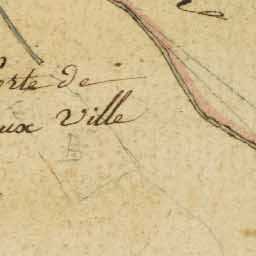 orte de
eux Ville